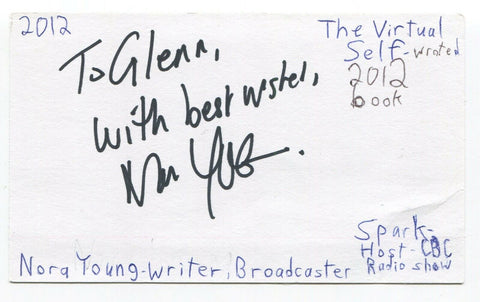 2012
The Virtual
Self-wroted
2012
book
To Glenn,
with best wishes,
Nora Young.
Spark-
Host-CBC
Radio show
Nora Young-writer, Broadcaster